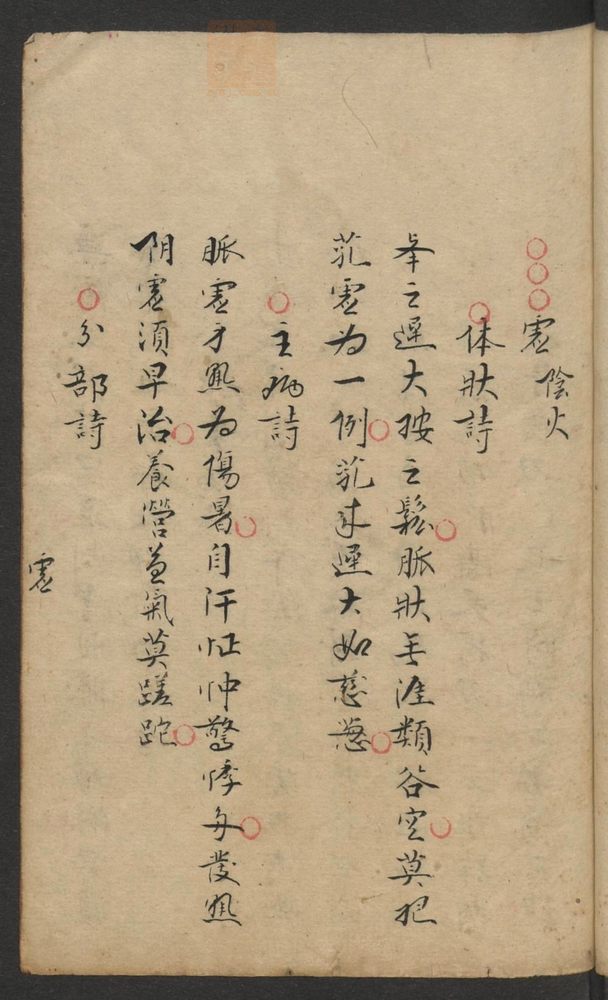 虛 陰火
体狀詩
举之遲大按之鬆脈狀无涯類谷空莫把
芤虛为一例芤来遲大如慈葱
主病詩
脈虛身熱为傷暑自汗怔忡驚悸多發熱
阴虛須早治養營益氣莫蹉跎
分部詩
虛